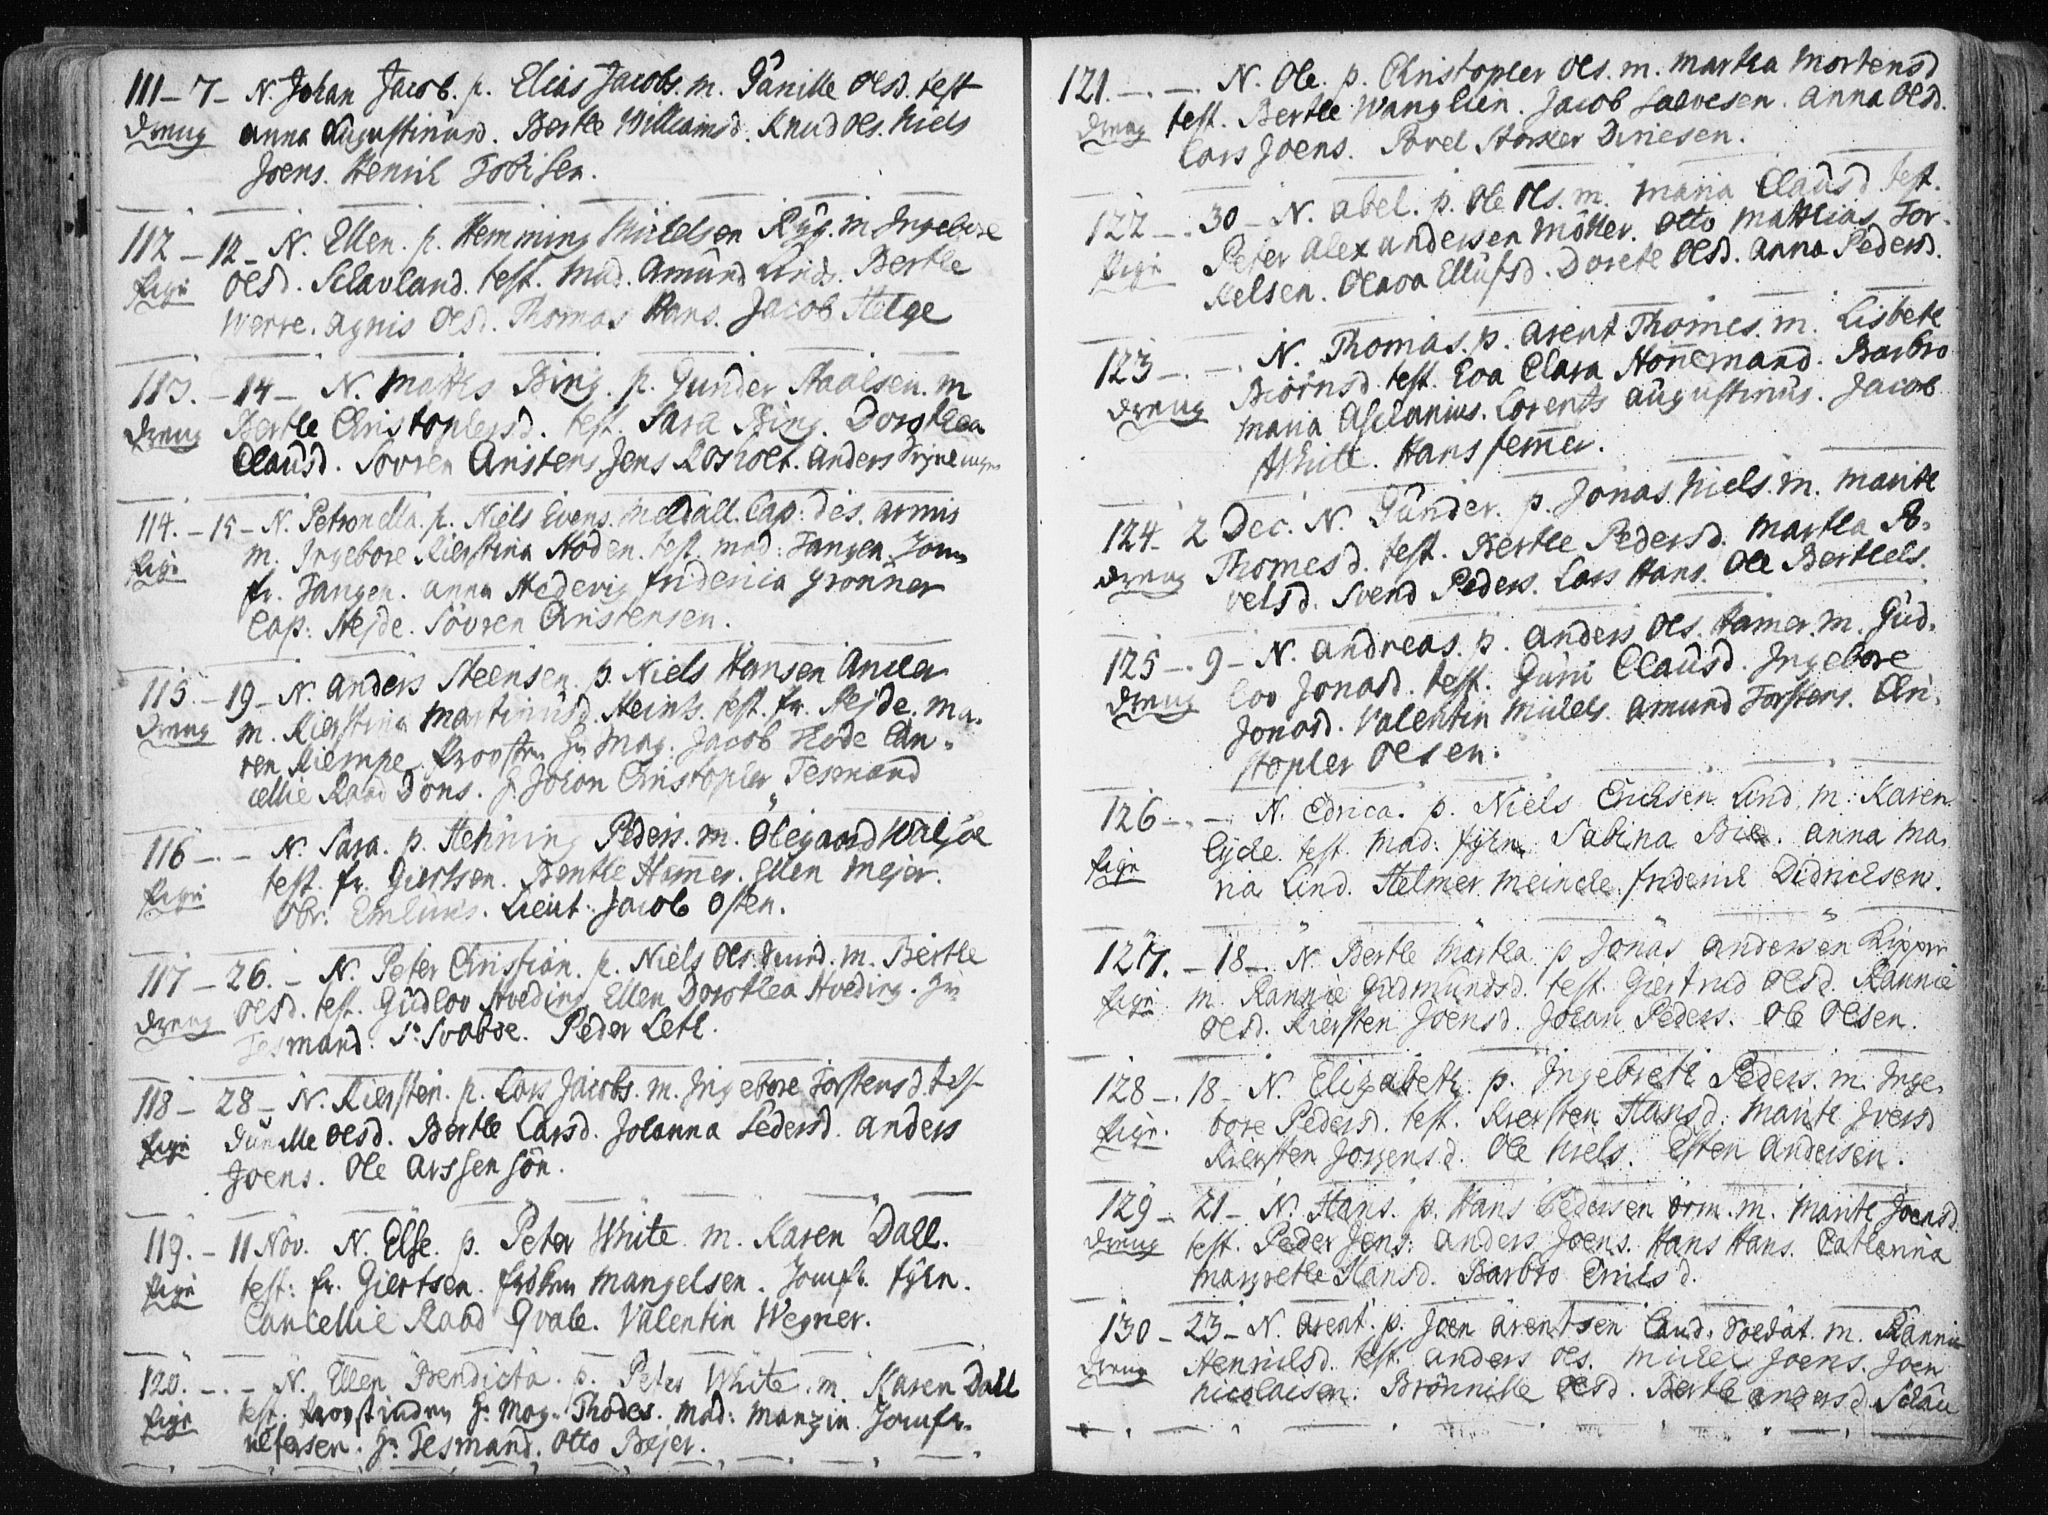 111 – 7 – N. Johan Jacob. p. Elias Jacobs. m. Gunille Olsd. test
dreng Anna Augustinusd. Berthe Williamsd. Knud Ols. Niels
Joens. Henrich Tobisen.
112 – 12 – N. Ellen. p. Hemming Michelsen Ryg. m. Ingebore
Pige Olsd. test. Mad. Amund Linds. Berthe
Werre. Agnis Olsd. Thomas Hans. Jacob Helge
113. – 14 – N. Mathis Bing. p. Gunder Staalsen. m
dreng Berthe Christophersd. test. Sara Bing. Dorothea
Clausd. Sövren Christens Jens Rosholt. Anders
114. – 15 – N. Petronella. p. Niels Evens. Meldall. Cap: des armis
Pige m. Ingebore Kierstina Hoden. test. Mad: Tangen. Jomf
fr. Tangen. Anna Hedevig Friderica Grönner
Cap: Hejde. Sövren Christensen.
115. – 19 – N. Anders Steensen. p. Niels Hansen Ancher
Dreng m. Kierstina Martinusd. Heints. test. fr. Hejde. Ma-
ren Kiempe. Provsten Hr Mag. Jacob Hode Can-
cellie Raad Dons. Hr Johan Christopher Tesmand
116 – . – N. Sara. p. Henning Peders. m. Olegaard
Pige test. fr. Giertsen. Benthe Hammer. Ellen Mejer.
Obr: Emhuis. Lieut: Jacob Osten.
117 – 26. – N. Peter Christian. p. Niels Ols. m. Berthe
Dreng Olsd. test. Gudlov Hveding Ellen Dorothea Hveding. Hr
Tesmand. Sr Svaboe. Peder Leth.
118 – 28 – N. Kiersten. p. Lars Jacobs. m. Ingebore Torstensd test
Pige Gunille Olsd. Berthe Larsd. Johanna Pedersd. Anders
Joens. Ole Arssensön.
119. – 11 Nov. N. Else. p. Peter White m. Karen Dall.
Pige test: fr. Giertsen. Frökn Mangelsen. Jomfr. Fyhn.
Cancellie Raad Qvale. Valentin Wegner.
120. – . – N. Ellen Bendicta. p. Peter White. m. Karen Dall
Pige test. Provstinden Hr Mag. Thodes. Mad: Manzin. Jomfr.
Ulfersen. Hr Tesmand. Otto Bejer.
121. – . – N. Ole. p. Christopher Ols. m. Martha Mortensd
Dreng test. Berthe Wanglien. Jacob Salvesen. Anna Olsd.
Lars Joens. Povel Storker Dinesen.
122 – . 30 – N. Abel. p. Ole Ols. m. Maria Clausd test.
Pige Peter Alexandersen Möller. Otto Mathias Tor-
kelsen. Olava Ellufsd. Dorete Olsd. Anna Pedersd.
123 – . – . N. Thomas. p. Arent Thomes. m. Lisbeth
Dreng Biörnsd. test. Eva Clara Honnemand. Barbro
Maria Aschanius. Lorents Augustinus. Jacob
White. Hans Temmer.
124 – 2 Dec. N. Gunder. p. Jonas Niels. m. Marite
Dreng Thomesd. test. Berthe Pedersd. Martha Po-
velsd. Svend Peders. Lars Hans. Ole Berthels.
125 – . 9 – N. Andreas. p. Anders Ols. Hamer. m. Gud-
Dreng lov Jonasd. test. Guri Clausd. Ingebore
Jonasd. Valentin Michels. Amund Torstens. Chri-
stopher Olsen.
126 – . – N. Edrica. p. Niels Erichsen Lind. m. Karen
Pige Lyche. test. Mad: Fyhn. Sabina Bie. Anna Ma-
ria Lind. Helmer Meincke. Friderich Didrichsen.
127. – 18 – . N. Berthe Martha. p. Jonas Andersen
Pige m. Rannie Gudmundsd. test. Giertrud Olsd. Rannie
Olsd. Kiersten Joensd. Johan Peders. Ole Olsen.
128 – . 18 – N. Elizabeth. p. Ingebreth Peders. m. Inge-
Pige. bore Pedersd. test. Kiersten Hansd. Marite Iversd
Kiersten Jorgensd. Ole Niels. Esten Andersen.
129 – 21 – N. Hans. p. Hans Pedersen Orm. m. Marite Joensd.
Dreng test. Peder Jens: Anders Joens. Hans Hans. Catharina
Margrethe Hansd. Barbro Ericsd.
130 – 23 – N. Arent. p. Joen Arentsen Land. Soldat. m. Rannie
Dreng Henrichsd. test. Anders Ols. Michel Joens. Joen
Nicolaisen. Brönnille Olsd. Berthe Andersd.